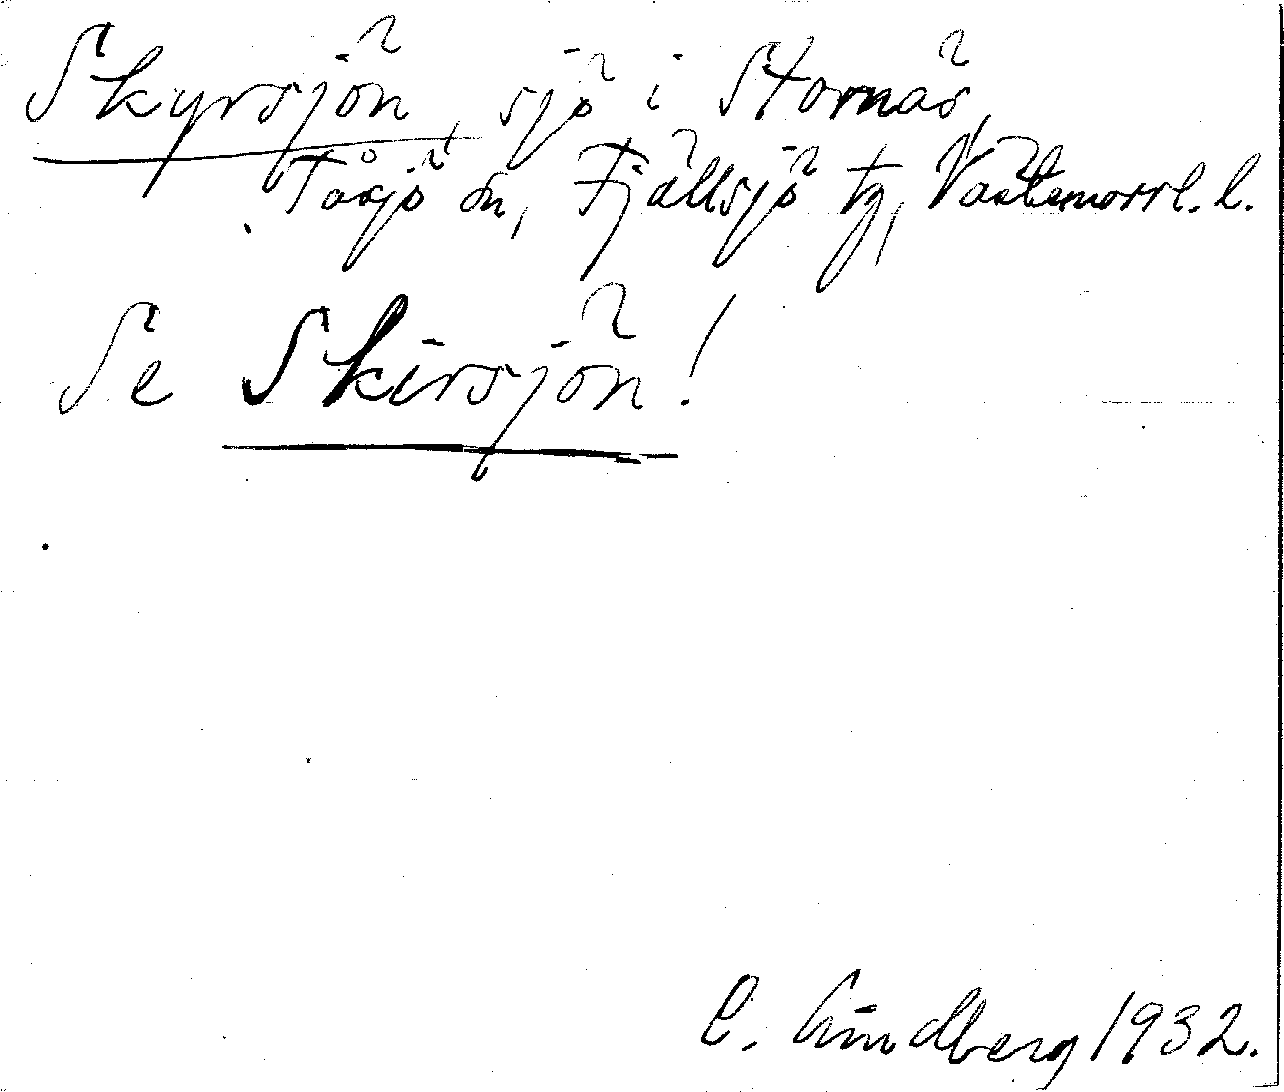 Skyrsjön, sjö i Stornäs,
Tåsjö sn, Fjällsjö tg, Västernorrl. l.
Se Skirsjön!
C. Lindberg 1932.